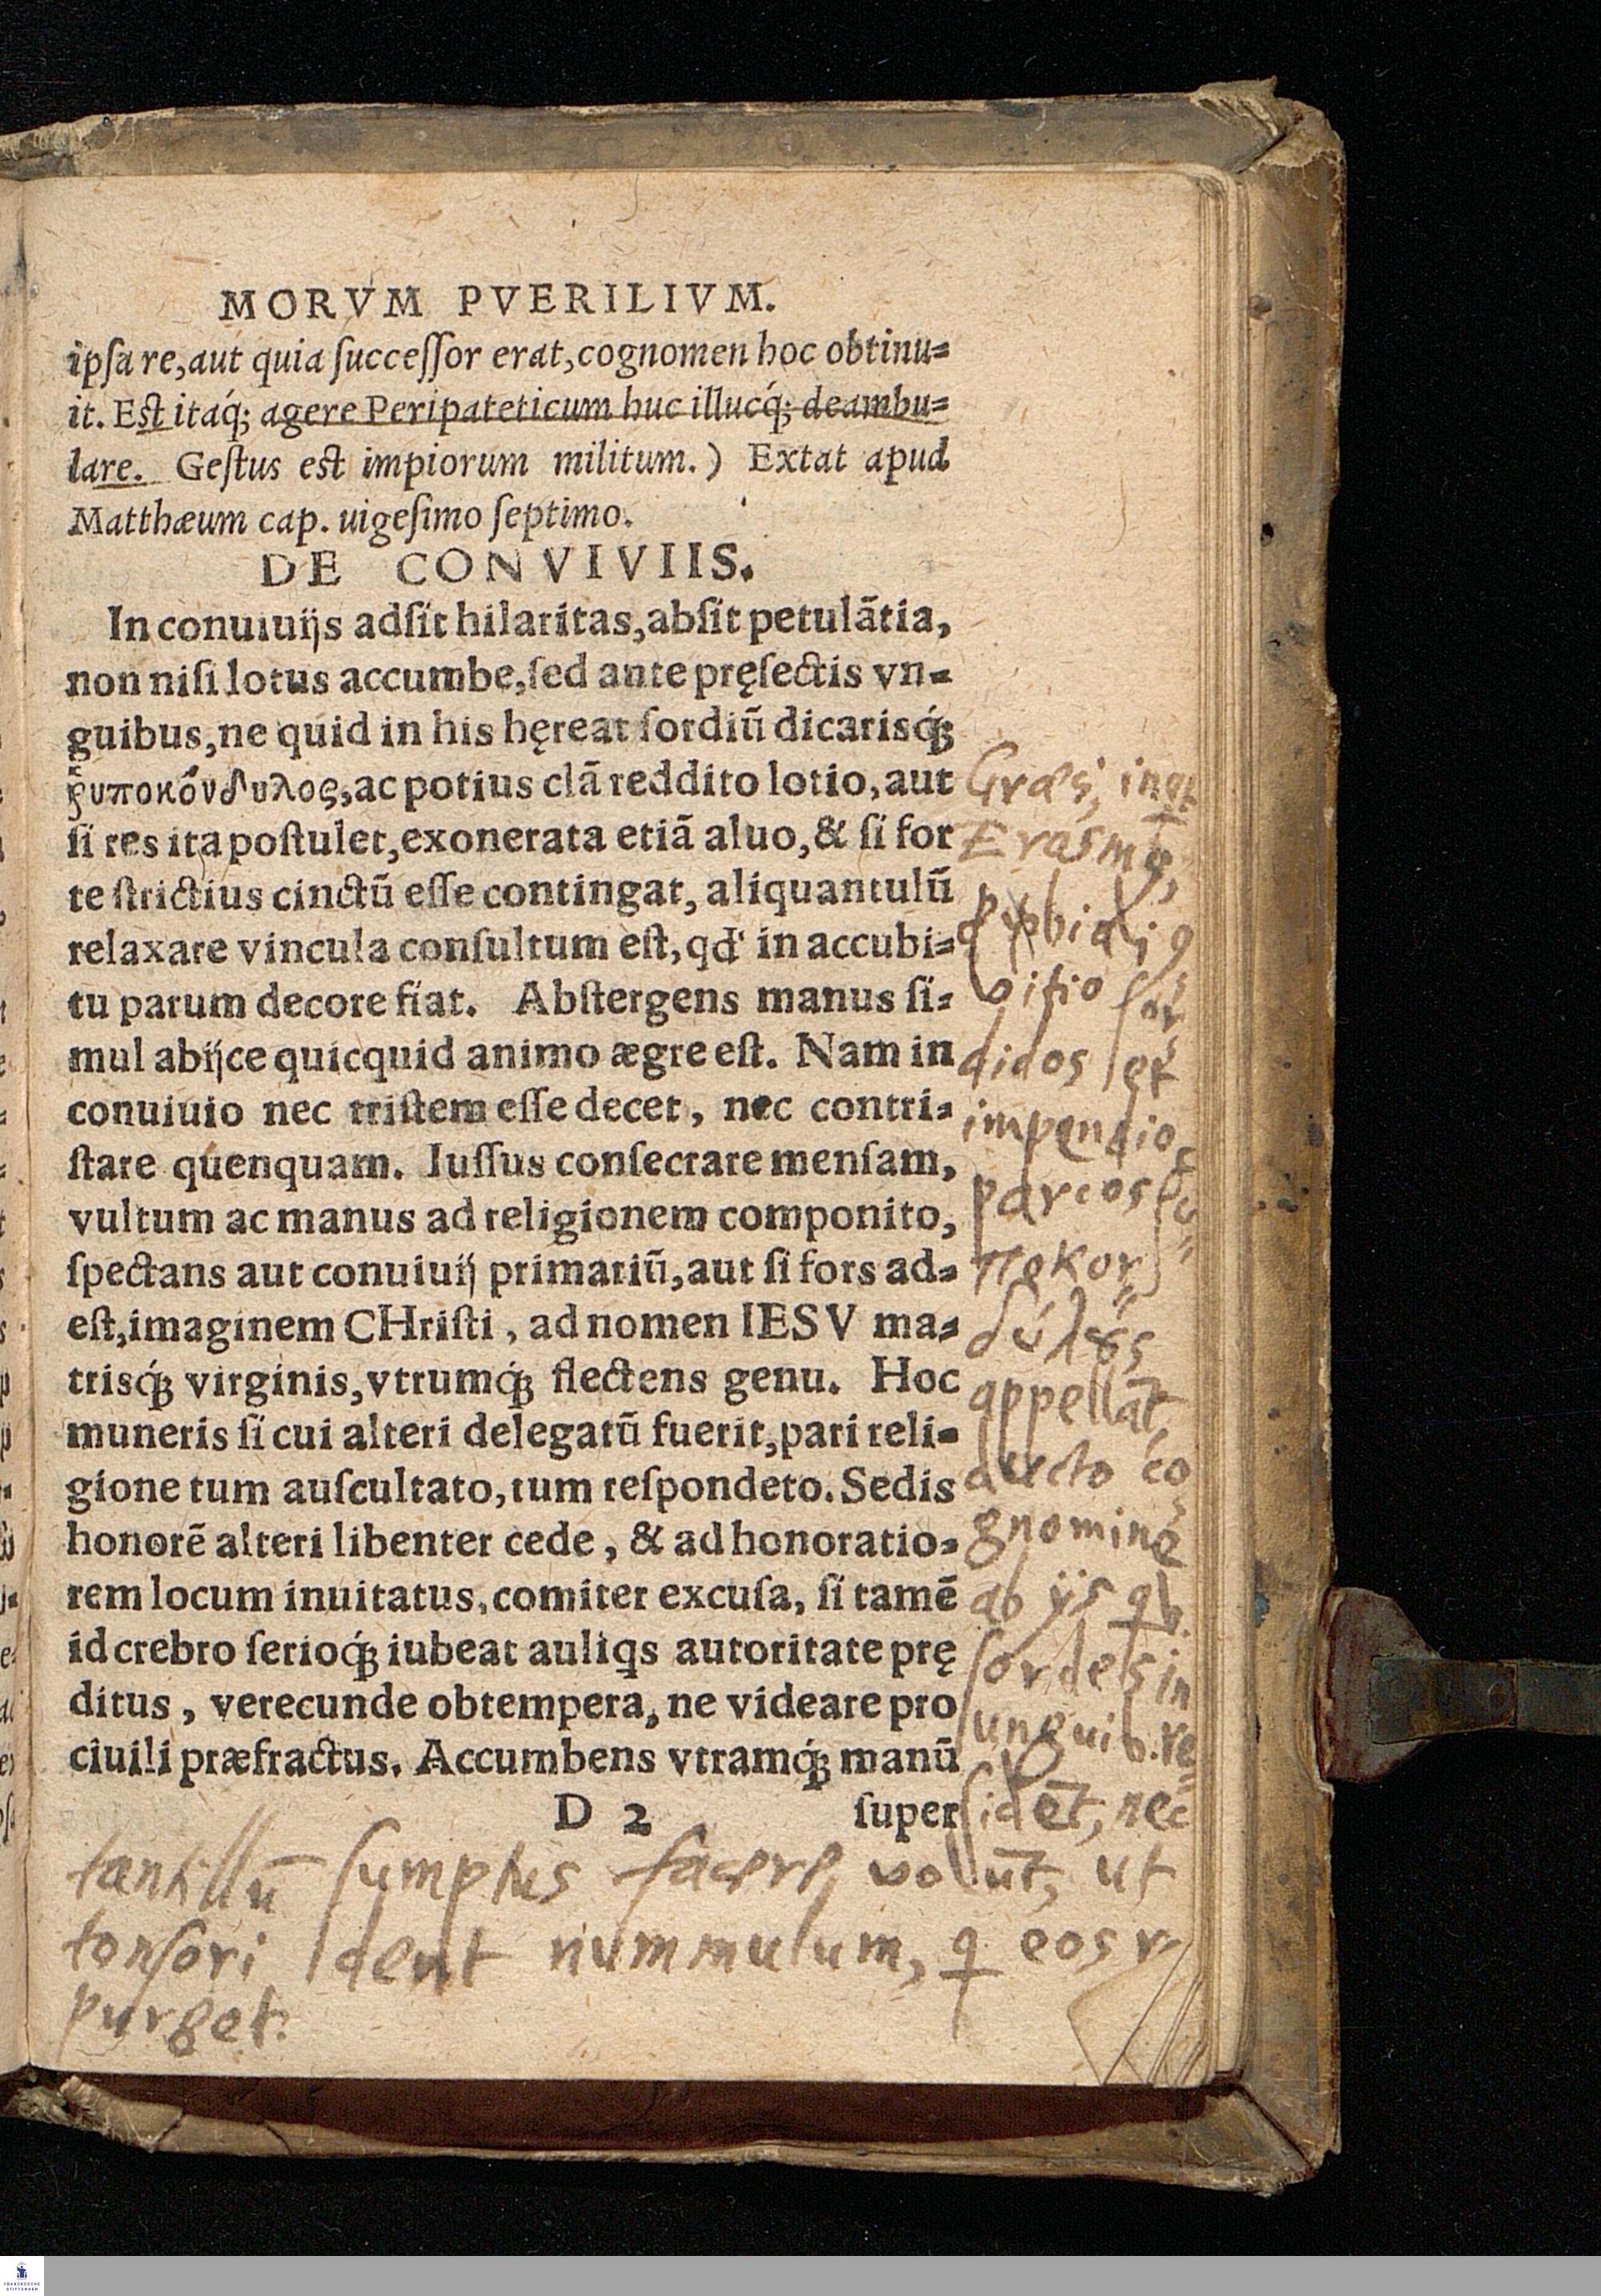 MORVM PVERILIVM.
ipſa re, aut quia ſucceſſor erat, cognomen hoc obtinu⸗
it. Eſt itaq́; agere Peripateticum huc illucq́; deambu⸗
lare. Geſtus eſt impiorum militum.) Extat apud
Matthæum cap. uigeſimo ſeptimo.
DE CONVIVIIS.
In conuiuijs adſit hilaritas, abſit petulãtia,
non niſi lotus accumbe, ſed ante pręſectis vn⸗
guibus, ne quid in his hęreat ſordiũ dicarisq́ꝫ
ῥυποκόνδυλος, ac potius clã reddito lotio, aut
ſi res ita poſtulet, exonerata etiã aluo, & ſi for
te ſtrictius cinctũ eſſe contingat, aliquantulũ
relaxare vincula conſultum eſt, qđ in accubi⸗
tu parum decore fiat. Abſtergens manus ſi⸗
mul abijce quicquid animo ægre eſt. Nam in
conuiuio nec triſtem eſſe decet, nec contri⸗
ſtare quenquam. Iuſſus conſecrare menſam,
vultum ac manus ad religionem componito,
ſpectans aut conuiuij primariũ, aut ſi fors ad⸗
eſt, imaginem CHriſti, ad nomen IESV ma⸗
trisq́ꝫ virginis, vtrumq́ꝫ flectens genu. Hoc
muneris ſi cui alteri delegatũ fuerit, pari reli⸗
gione tum auſcultato, tum reſpondeto. Sedis
honorẽ alteri libenter cede, & ad honoratio⸗
rem locum inuitatus, comiter excuſa, ſi tamẽ
id crebro ſerioq́ꝫ iubeat aliꝗs autoritate prę
ditus, verecunde obtempera, ne videare pro
ciuili præfractus. Accumbens vtramq́ꝫ manũ
D 2 ſuper
Græci, inqt
Erasmꝰ,
vitio ſor⸗
didos et
impendio
parcos ῥυ⸗
ποκον⸗
δύλȣς
appellãt,
ducto co⸗
gnomine
ab ijs qb.
ſordes in
unguib. re⸗
ſidẽt, nec
tantillũ ſumptus facere volũt, ut
tonſori dent nummulum, q eos r⸗
purget.
FRANCKESCHE
STIFTUNGEN